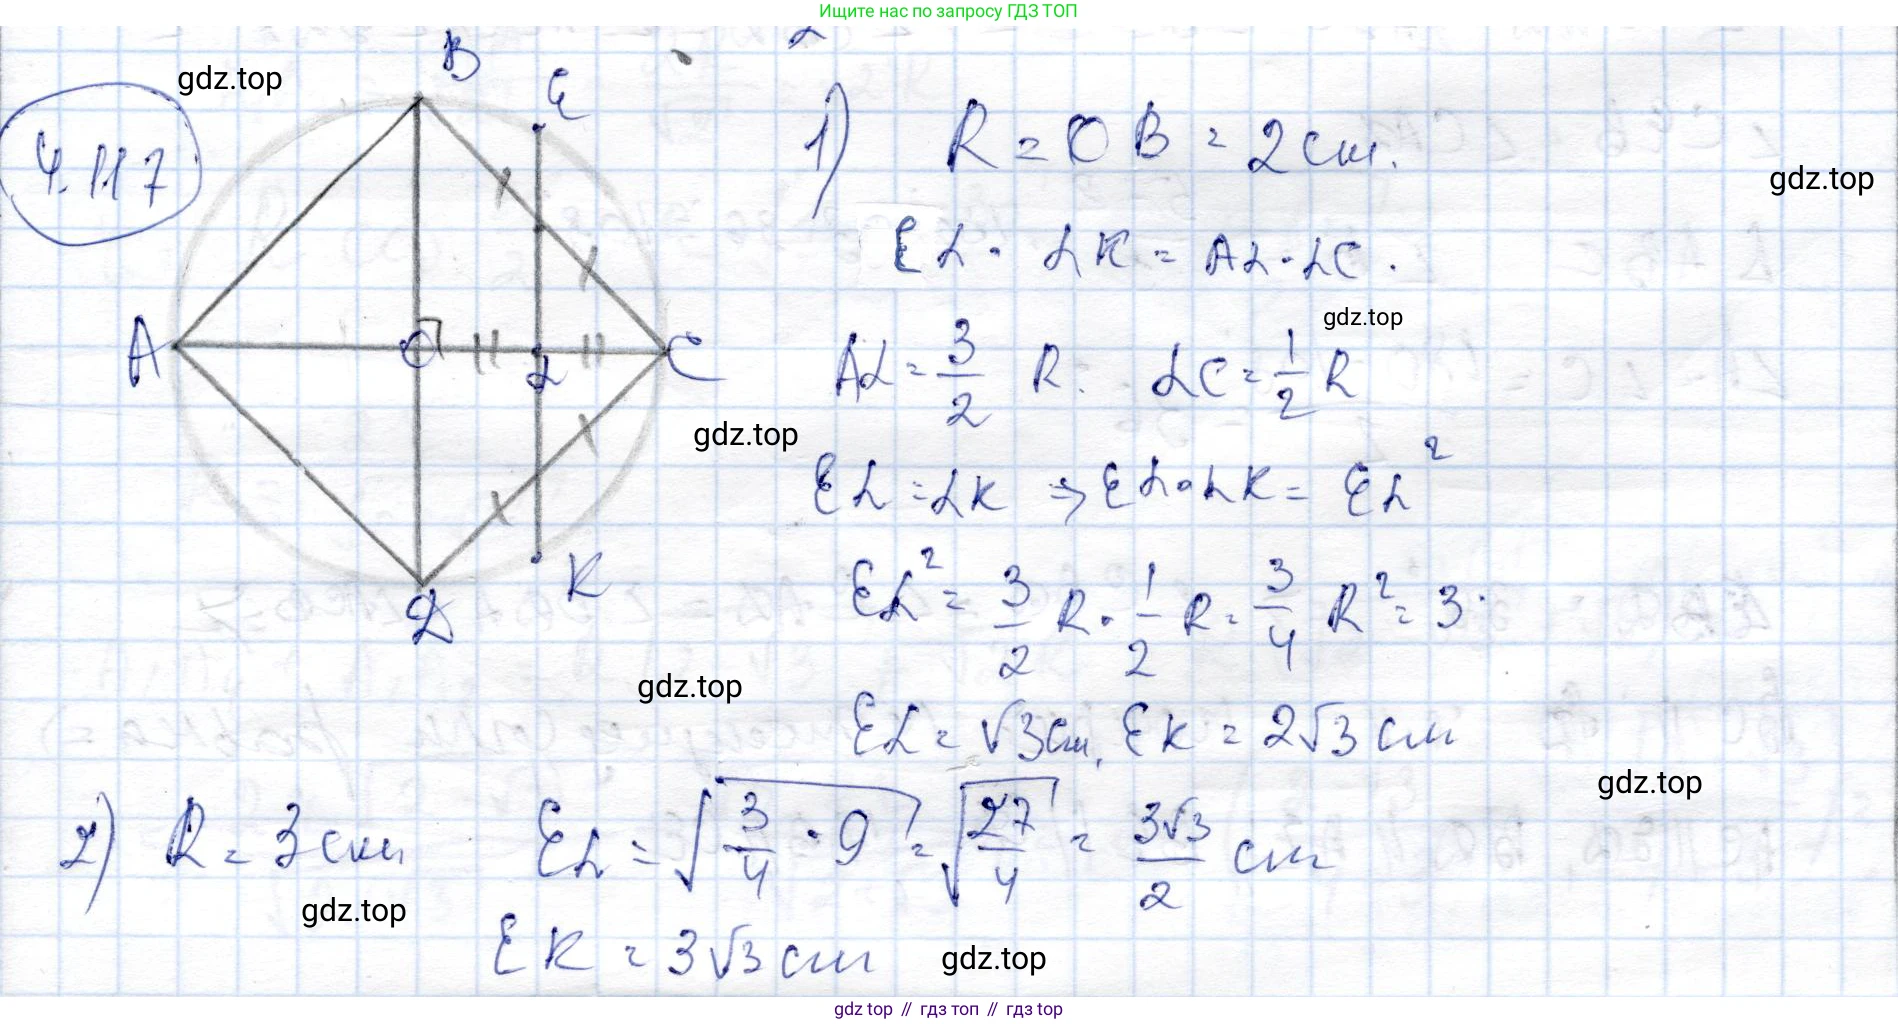 Ищите нас по запросу ГДЗ ТОП
4.117
gdz.top
B
E
A
O
L
C
D
K
1) R = OB = 2 см.
gdz.top
EL · LK = AL · LC.
gdz.top
AL = 3/2 R. LC = 1/2 R
gdz.top
EL = LK ⇒ EL · LK = EL²
EL² = 3/2 R · 1/2 R = 3/4 R² = 3.
gdz.top
EL = √3 см, EK = 2√3 см
gdz.top
2) R = 3 см EL = √(3/4 · 9) = √(27/4) = 3√3/2 см
gdz.top
EK = 3√3 см
gdz.top
gdz.top // гдз топ // гдз top